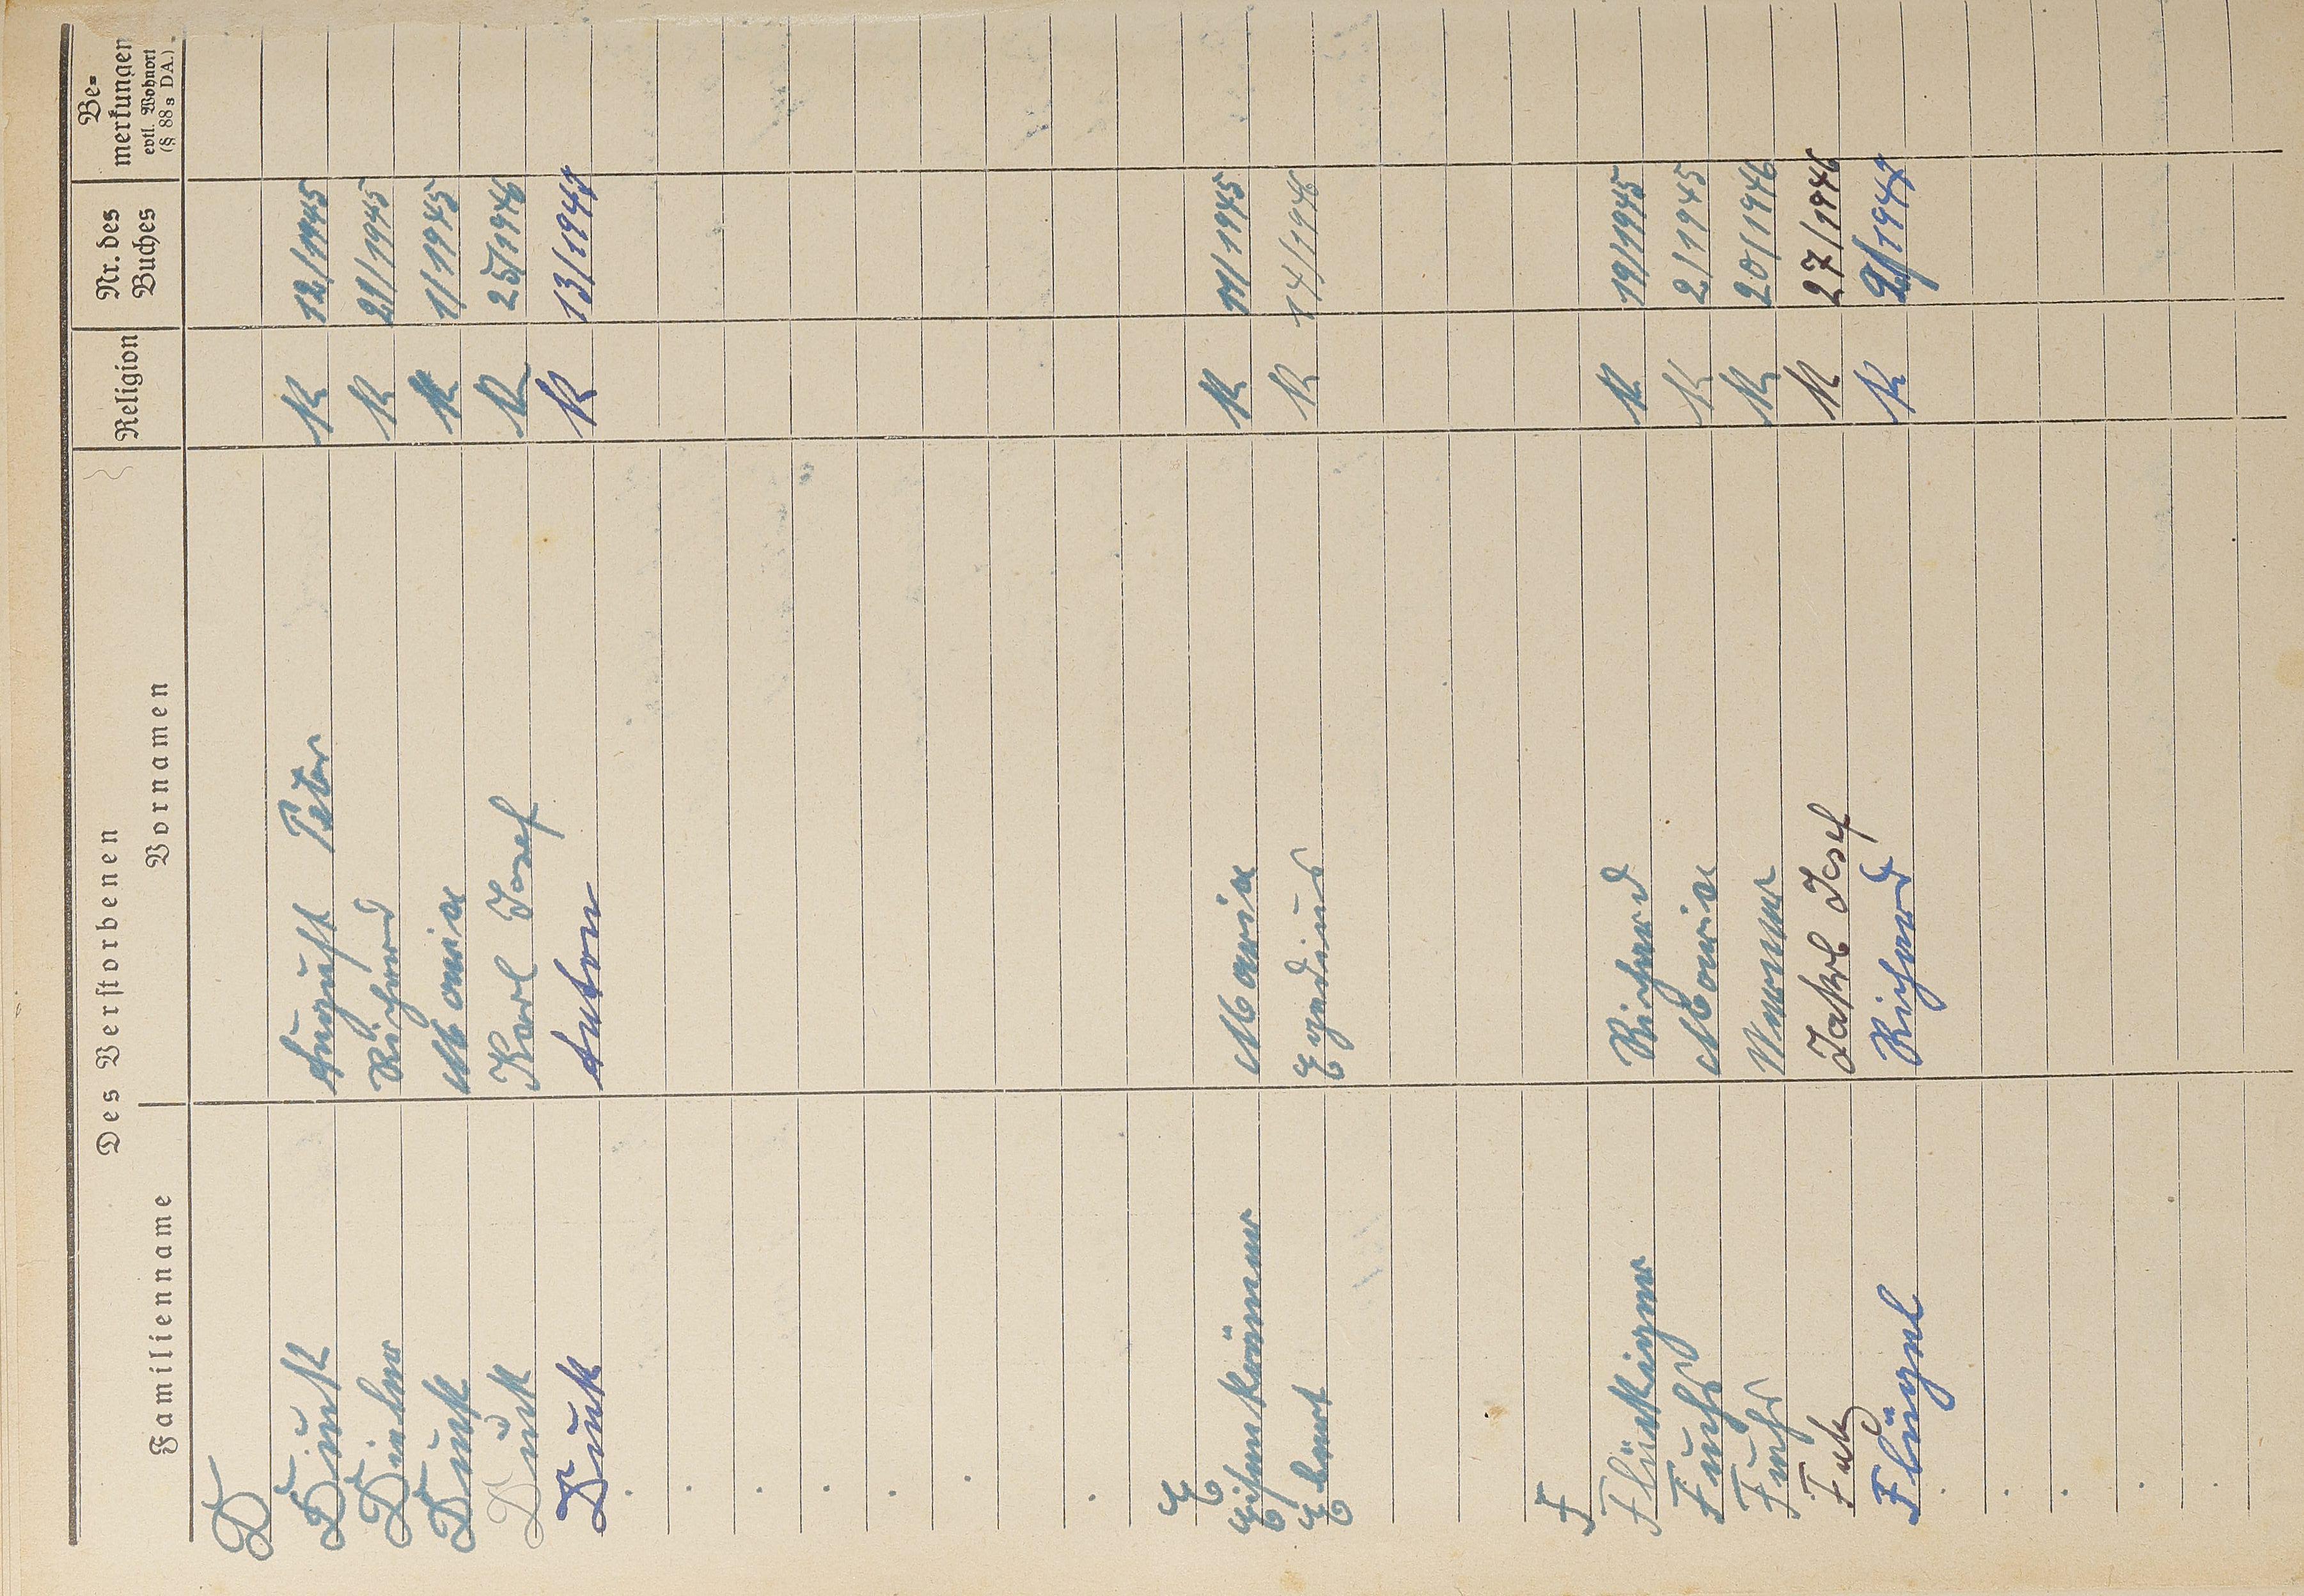 Des Verstorbenen
Familienname Vornamen Religion Nr. des Buches Be-merkungen evtl. Wohnort (§ 88 s DA.)
D
Duck August Peter K 12/1945
Richard K 21/1945
Duck Maria K 1/1945
Duck Karl Josef K 25/1946
Duck Anton K 13/1947
E
Eisenkrämer Maria K 11/1945
Ebert Egidius K 14/1946
F
Flückiger Richard K 19/1945
Fuchs Maria K 2/1945
Fuchs Werner K 20/1946
Jakob Josef K 27/1946
Flügel Richard K 2/1947